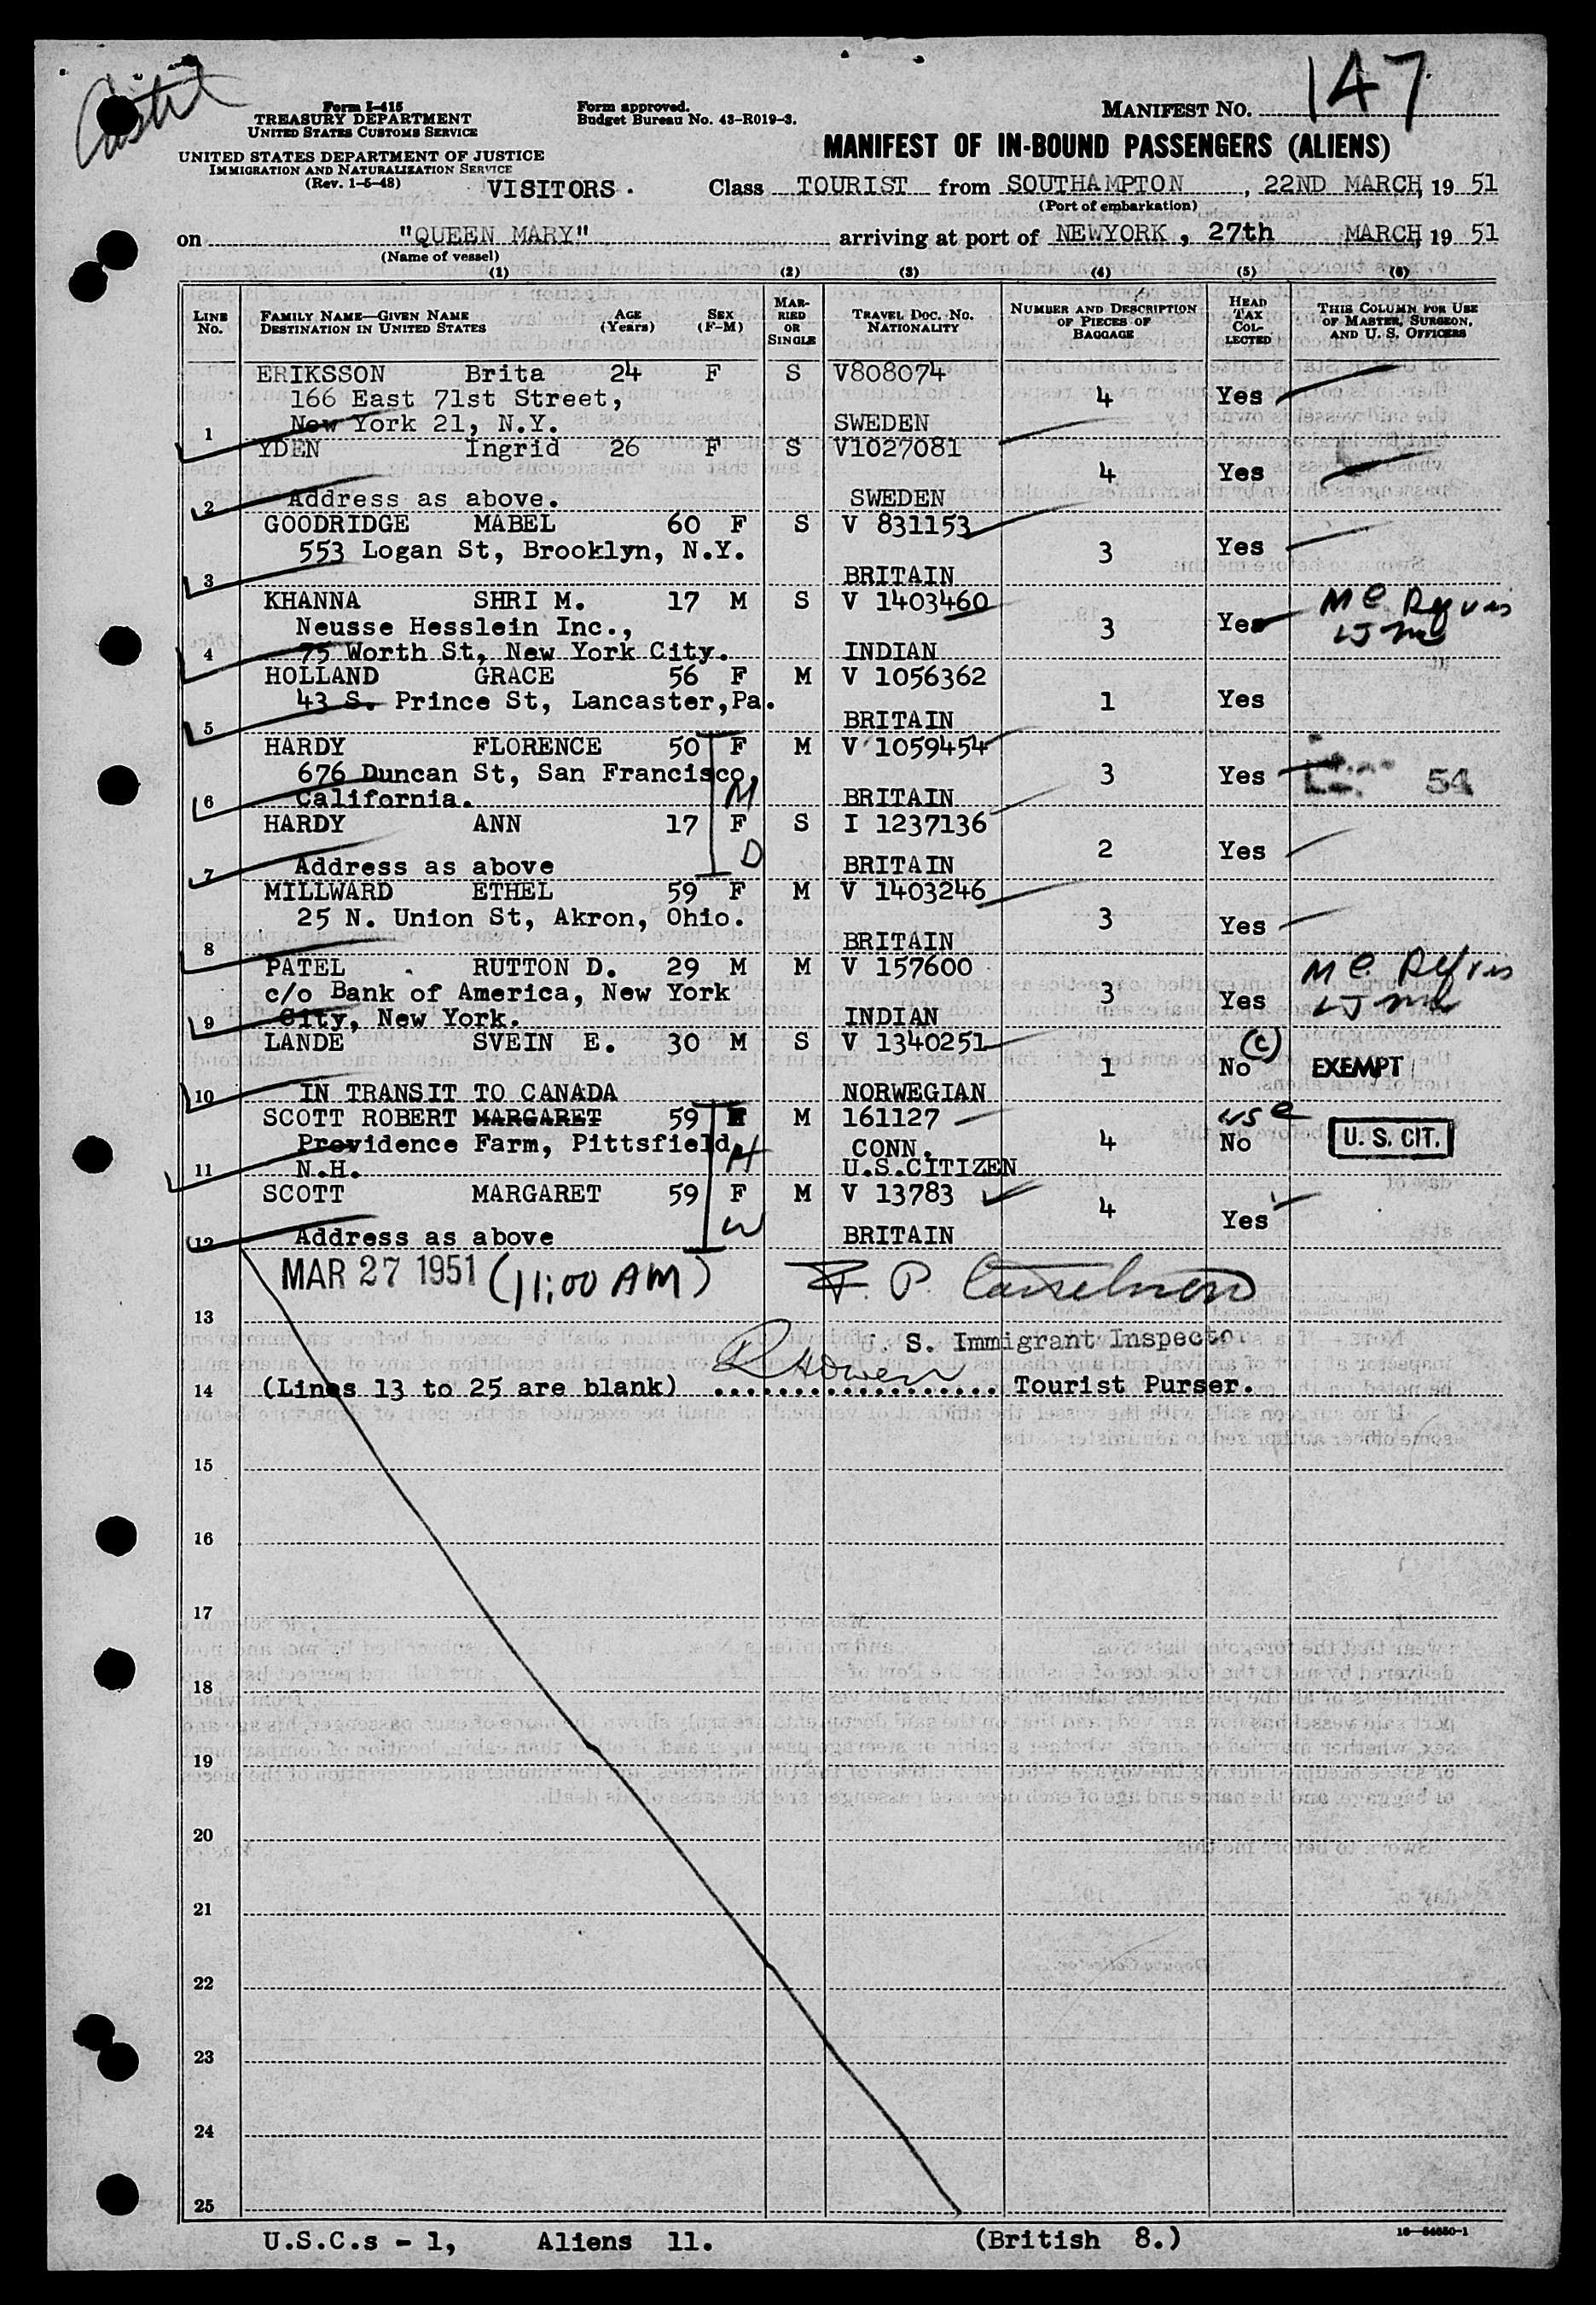 147
Form I-415
TREASURY DEPARTMENT
UNITED STATES CUSTOMS SERVICE
Form approved.
Budget Bureau No. 43-R019-3.
MANIFEST NO.
UNITED STATES DEPARTMENT OF JUSTICE
IMMIGRATION AND NATURALIZATION SERVICE
(Rev. 1-5-48)
MANIFEST OF IN-BOUND PASSENGERS (ALIENS)
VISITORS. Class TOURIST from SOUTHAMPTON, 22ND MARCH, 19 51
(Port of embarkation)
on "QUEEN MARY" arriving at port of NEWYORK, 27th MARCH, 19 51
(Name of vessel)
(1) (2) (3) (4) (5) (6)
LINE No. FAMILY NAME—GIVEN NAME DESTINATION IN UNITED STATES AGE (Years) SEX (F-M) MARRIED OR SINGLE TRAVEL DOC. NO. NATIONALITY NUMBER AND DESCRIPTION OF PIECES OF BAGGAGE HEAD TAX COLLECTED THIS COLUMN FOR USE OF MASTER, SURGEON, AND U. S. OFFICERS
ERIKSSON Brita 24 F S V808074
166 East 71st Street, 4 Yes
1 New York 21, N.Y. SWEDEN
YDEN Ingrid 26 F S V1027081
4 Yes
2 Address as above. SWEDEN
GOODRIDGE MABEL 60 F S V 831153
553 Logan St, Brooklyn, N.Y. 3 Yes
3 BRITAIN
KHANNA SHRI M. 17 M S V 1403460
Neusse Hesslein Inc., 3 Yes
4 75 Worth St, New York City. INDIAN
HOLLAND GRACE 56 F M V 1056362
43 S. Prince St, Lancaster,Pa. 1 Yes
5 BRITAIN
HARDY FLORENCE 50 F M V 1059454
676 Duncan St, San Francisco, 3 Yes 54
6 California. M BRITAIN
HARDY ANN 17 F S I 1237136
D 2 Yes
7 Address as above BRITAIN
MILLWARD ETHEL 59 F M V 1403246
25 N. Union St, Akron, Ohio. 3 Yes
8 BRITAIN
PATEL RUTTON D. 29 M M V 157600
c/o Bank of America, New York 3 Yes
9 City, New York. INDIAN
LANDE SVEIN E. 30 M S V 1340251 (C)
1 No EXEMPT
10 IN TRANSIT TO CANADA NORWEGIAN
SCOTT ROBERT MARGARET 59 M 161127 usc
Providence Farm, Pittsfield H CONN. 4 No U. S. CIT.
11 N.H. U.S.CITIZEN
SCOTT MARGARET 59 F M V 13783
W 4 Yes
12 Address as above BRITAIN
MAR 27 1951 (11:00 AM)
13
U. S. Immigrant Inspector
14 (Lines 13 to 25 are blank) .................. Tourist Purser.
15
16
17
18
19
20
21
22
23
24
25
U.S.C.s - 1, Aliens 11. (British 8.)
16—54650-1